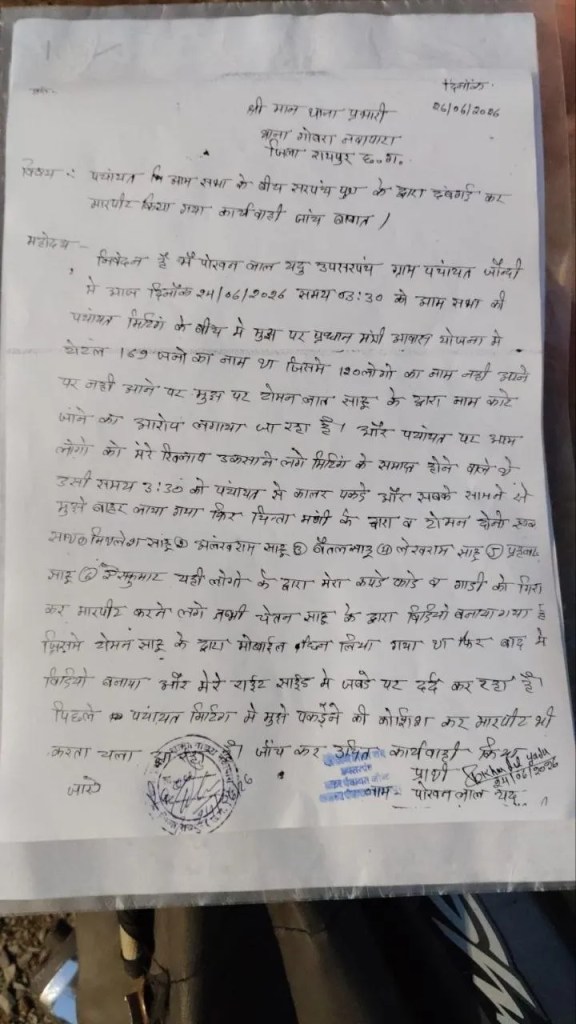 दिनाँक
26/06/2026
श्री मान थाना प्रभारी
थाना गोबरा नवापारा
जिला रायपुर छ. ग.
विषय : पंचायत आम सभा के बीच सरपंच के द्वारा दबंगई कर
मारपीट किया गया कार्यवाही जांच बाबत /
महोदय -
निवेदन है मैं पोखन लाल यदु उपसरपंच ग्राम पंचायत जौन्दी
मे आज दिनाँक 24/06/2026 समय 03:30 को आम सभा की
पंचायत मिटिंग के बीच मे मुझ पर प्रधान मंत्री आवास योजना मे
टोटल 169 जनो का नाम था जिसमे 120 लोगो का नाम नही आने
पर नही आने पर मुझ पर टोमन लाल साहू के द्वारा नाम काटे
जाने का आरोप लगाया जा रहा है। और पंचायत पर आम
लोगो को मेरे खिलाफ उकसाने लगे मिटिंग के समाप्त होने वाले थे
उसी समय 3:30 को पंचायत से कालर पकडे और सबके सामने से
मुझे बाहर लाया गया फिर चिन्ता मणी के द्वारा व टोमन दोनो
साथ मिथलेश साहू अलखराम साहू बैतल साहू लेखराम साहू
साहू यही लोगो के द्वारा मेरा कपडे फाडे व गाडी को गिरा
कर मारपीट करने लगे तभी चेतन साहू के द्वारा विडियो बनाया गया है
जिसमे टोमन साहू के द्वारा मोबाईल छिन लिया गया था फिर बाद मे
विडियो बनाया और मेरे राईट साईड मे जबडे पर दर्द कर रहा है।
पिछले पंचायत मिटिंग मे मुझे पकडने की कोशिश कर मारपीट भी
करता चला आ रहा है। जाँच कर उचित कार्यवाही किया
जाये
प्रार्थी
24/06/2026
नाम पोखन लाल यदु